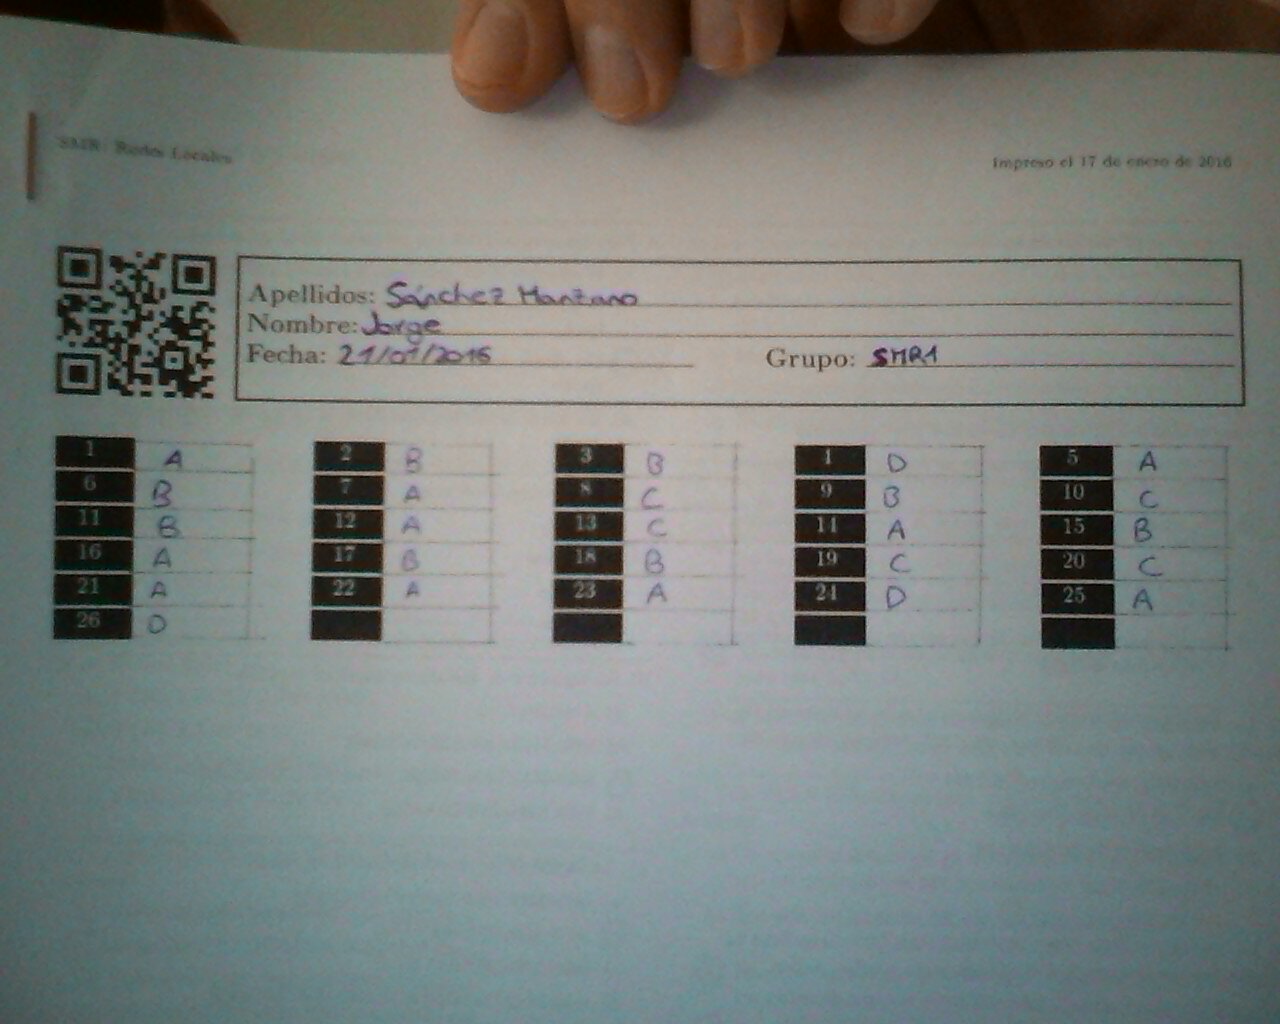 SMR: Redes Locales
Impreso el 17 de enero de 2016
Apellidos: Sánchez Manzano
Nombre: Jorge
Fecha: 21/01/2016 Grupo: SMR1
1 A 2 B 3 B 4 D 5 A
6 B 7 A 8 C 9 B 10 C
11 B 12 A 13 C 14 A 15 B
16 A 17 B 18 B 19 C 20 C
21 A 22 A 23 A 24 D 25 A
26 D